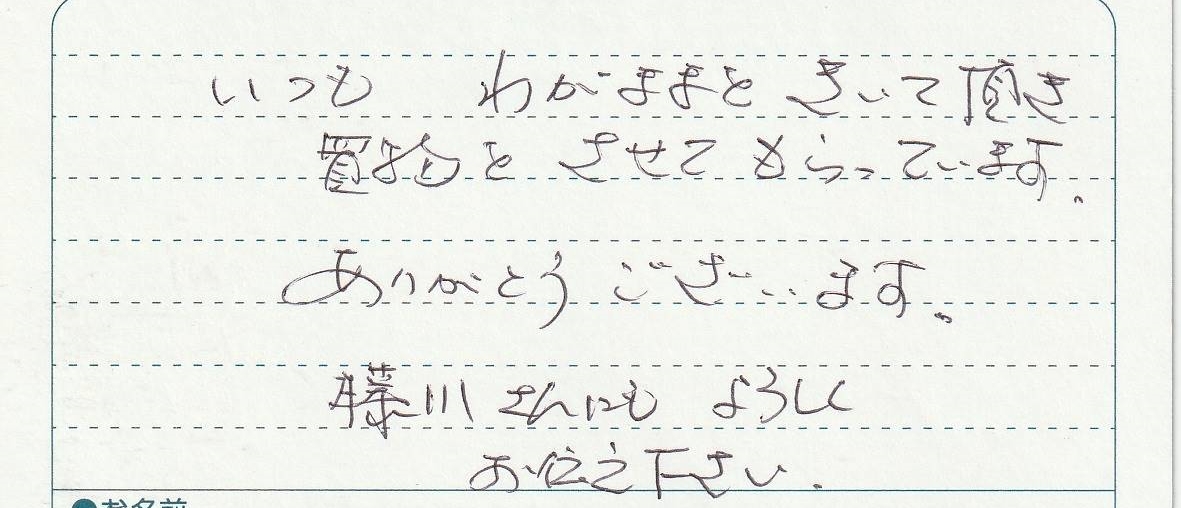 いつも わがままをきいて頂き
置物を させて もらっています。
ありがとう ございます。
藤川さんにも よろしく
お伝え下さい.
●お名前